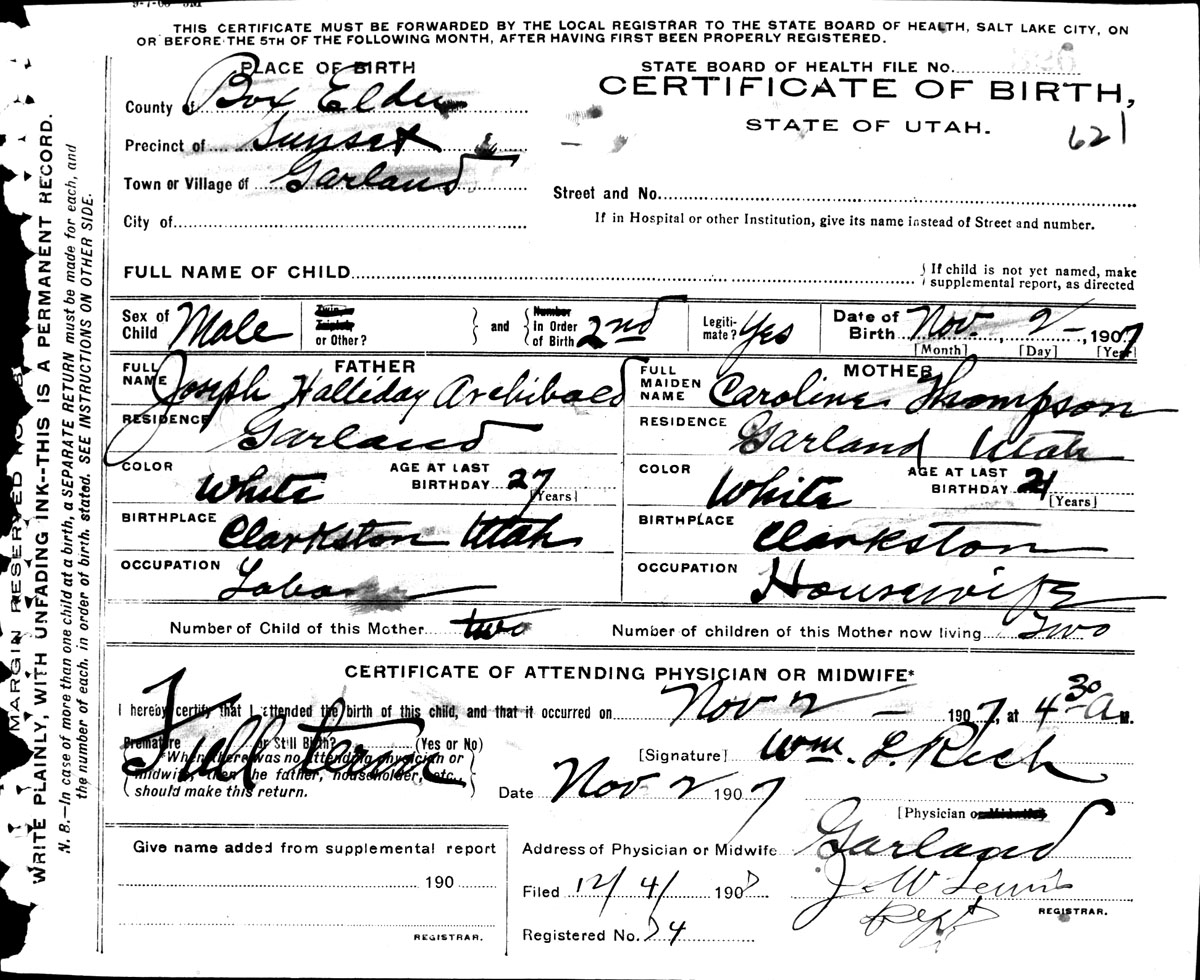 THIS CERTIFICATE MUST BE FORWARDED BY THE LOCAL REGISTRAR TO THE STATE BOARD OF HEALTH, SALT LAKE CITY, ON
OR BEFORE THE 5TH OF THE FOLLOWING MONTH, AFTER HAVING FIRST BEEN PROPERLY REGISTERED.
PLACE OF BIRTH
County of Box Elder
Precinct of Sunset
Town or Village of Garland
City of
STATE BOARD OF HEALTH FILE NO.
CERTIFICATE OF BIRTH,
STATE OF UTAH.
621
Street and No.
If in Hospital or other Institution, give its name instead of Street and number.
FULL NAME OF CHILD
If child is not yet named, make
supplemental report, as directed
Sex of Child Male
Twin, Triplet, or Other?
and
Number in Order of Birth 2nd
Legiti-mate? Yes
Date of Birth Nov. 2 - , 1907
[Month] [Day] [Year]
FATHER
FULL NAME Joseph Halliday Archibald
RESIDENCE Garland
COLOR White AGE AT LAST BIRTHDAY 27 [Years]
BIRTHPLACE Clarkston Utah
OCCUPATION Labor
MOTHER
FULL MAIDEN NAME Caroline Thompson
RESIDENCE Garland Utah
COLOR White AGE AT LAST BIRTHDAY 21 [Years]
BIRTHPLACE Clarkston
OCCUPATION Housewife
Number of Child of this Mother two Number of children of this Mother now living Two
CERTIFICATE OF ATTENDING PHYSICIAN OR MIDWIFE*
I hereby certify that I attended the birth of this child, and that it occurred on Nov 2 - 1907, at 4 30 A M.
Premature or Still Birth? (Yes or No)
Full term
*When there was no attending physician or
midwife, then the father, householder, etc.,
should make this return.
[Signature] Wm. L. Rich
Date Nov 2 1907
[Physician or Midwife]
Give name added from supplemental report
190
REGISTRAR.
Address of Physician or Midwife Garland
Filed 12/4/ 1907 J. W. Lewis
Dept REGISTRAR.
Registered No. 74
MARGIN RESERVED
WRITE PLAINLY, WITH UNFADING INK--THIS IS A PERMANENT RECORD.
N. B.—In case of more than one child at a birth, a SEPARATE RETURN must be made for each, and
the number of each, in order of birth, stated. SEE INSTRUCTIONS ON OTHER SIDE.